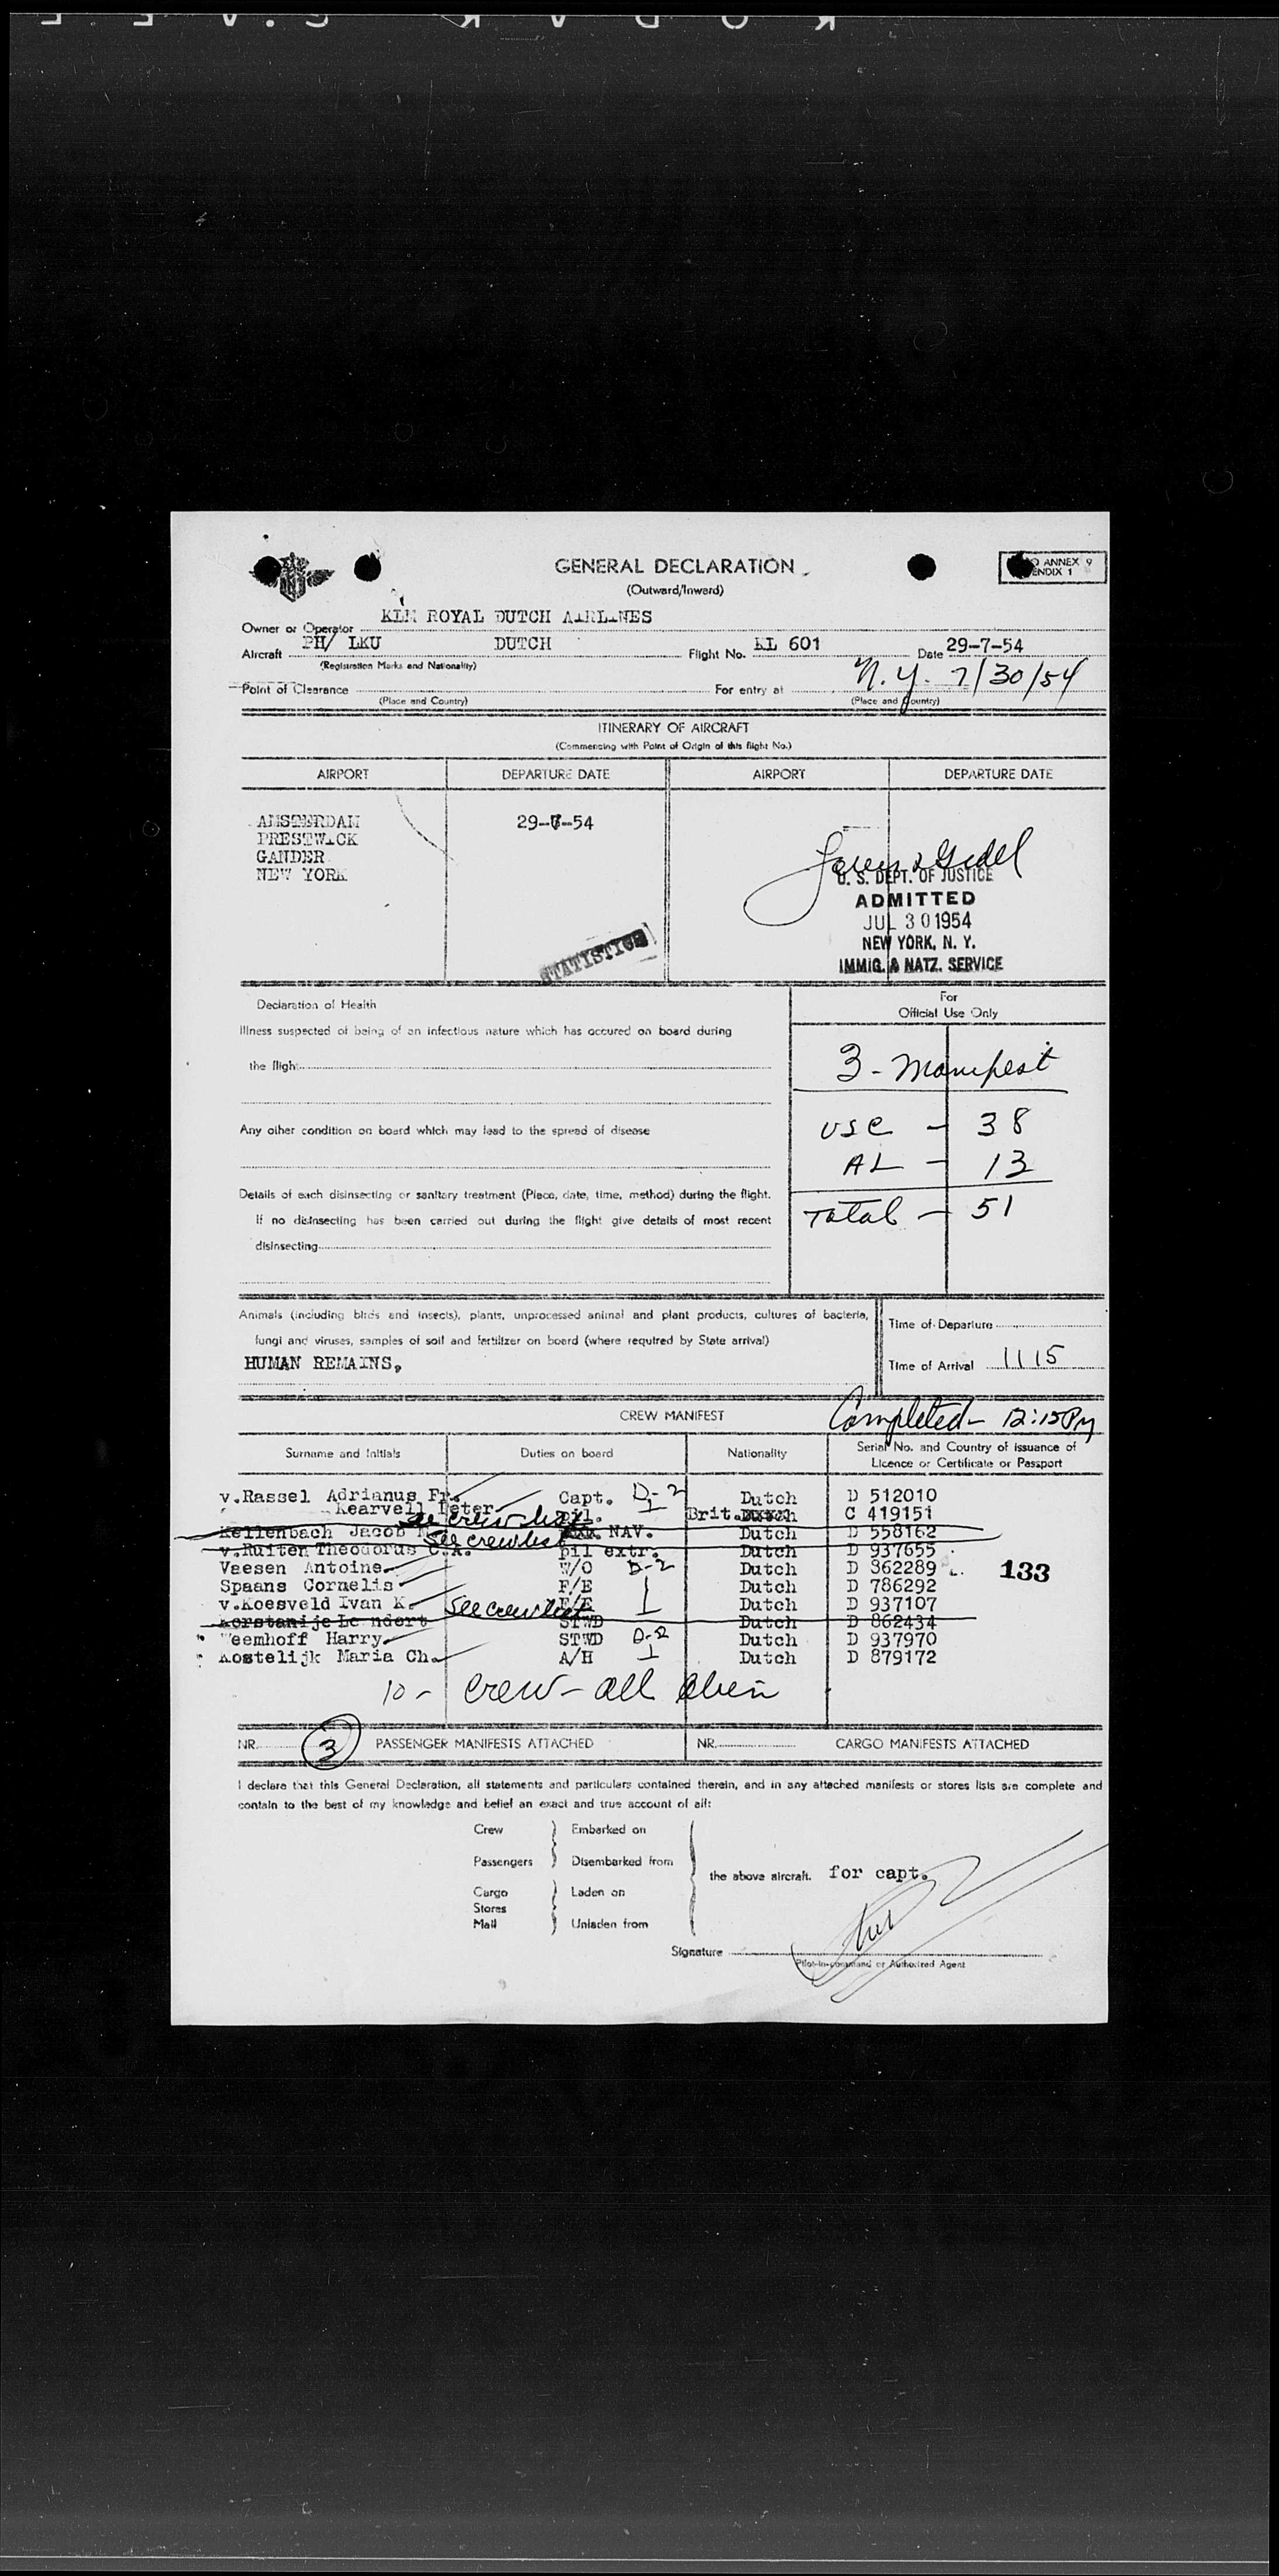 GENERAL DECLARATION
(Outward/Inward)
ANNEX 9
ENDIX 1
Owner or Operator KLM ROYAL DUTCH AIRLINES
Aircraft PH/ LKU DUTCH Flight No. KL 601 Date 29-7-54
(Registration Marks and Nationality)
Point of Clearance For entry at N.Y. 7/30/54
(Place and Country) (Place and Country)
ITINERARY OF AIRCRAFT
(Commencing with Point of Origin of this flight No.)
AIRPORT DEPARTURE DATE AIRPORT DEPARTURE DATE
AMSTERDAM 29-7-54
PRESTWICK
GANDER
NEW YORK
U. S. DEPT. OF JUSTICE
ADMITTED
JUL 30 1954
NEW YORK, N. Y.
IMMIG. & NATZ. SERVICE
STATISTICS
Declaration of Health
For
Official Use Only
Illness suspected of being of an infectious nature which has occured on board during
the flight
3 - Manifest
Any other condition on board which may lead to the spread of disease
USC - 38
AL - 13
Total - 51
Details of each disinsecting or sanitary treatment (Place, date, time, method) during the flight.
If no disinsecting has been carried out during the flight give details of most recent
disinsecting
Animals (including birds and insects), plants, unprocessed animal and plant products, cultures of bacteria,
fungi and viruses, samples of soil and fertilizer on board (where required by State arrival)
HUMAN REMAINS,
Time of Departure
Time of Arrival 1115
CREW MANIFEST
Completed - 12:15 PM
Surname and Initials Duties on board Nationality Serial No. and Country of issuance of
Licence or Certificate or Passport
v.Rassel Adrianus Fr. Capt. D-2 Dutch D 512010
Kearvell Peter Brit. C 419151
see crew list
Kellenbach Jacob NAV. Dutch D 558162
See crew list
v.Ruiten Theodorus C.A. pil extr. Dutch D 937655
Vaesen Antoine W/O D-2 Dutch D 362289
Spaans Cornelis F/E Dutch D 786292
133
v.Koesveld Ivan K. F/E Dutch D 937107
See crew list
Korstanije Le ndert STWD Dutch D 862434
Weemhoff Harry STWD D-2 Dutch D 937970
Kostelijk Maria Ch. A/H Dutch D 879172
10 - Crew - all alien
NR. 3 PASSENGER MANIFESTS ATTACHED NR. CARGO MANIFESTS ATTACHED
I declare that this General Declaration, all statements and particulars contained therein, and in any attached manifests or stores lists are complete and
contain to the best of my knowledge and belief an exact and true account of all:
Crew Embarked on
Passengers Disembarked from
the above aircraft. for capt.
Cargo Laden on
Stores
Mail Unladen from
Signature
Pilot-in-command or Authorized Agent